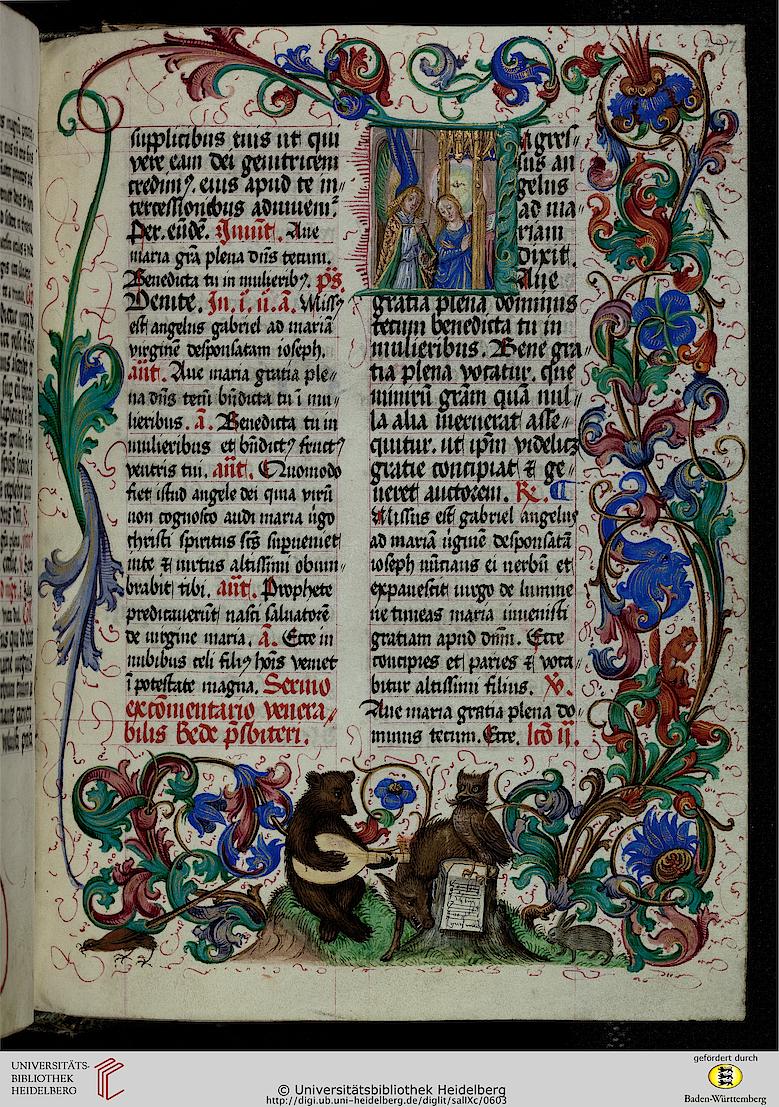 supplicibus tuis ut qui
vere eam dei genitricem
credimꝰ. eius apud te in‖
tercessionibus adiuvem᷑.
Per. eundē. Inuit̄. Aue
maria grā plena dn̄s tecum.
Benedicta tu in mulieribꝰ. p̄s.
Venite. In. i. n. a. Missꝰ
est angelus gabriel ad mariā
virginē desponsatam ioseph.
an̄t. Aue maria gratia ple‖
na dn̄s tecū bn̄dicta tu ī mu‖
lieribus. a. Benedicta tu in
mulieribus et bn̄dictꝰ fructꝰ
ventris tui. an̄t. Quomodo
fiet istud angele dei quia virū
non cognosco audi maria v̄go
christi spiritus sc̄s superveniet
in te ⁊ virtus altissimi obum‖
brabit tibi. an̄t. Prophete
predicaverūt nasci salvatorē
de virgine maria. a. Ecce in
nubibus celi filiꝰ hoīs veniet
ī potestate magna. Sermo
ex cōmentario venera‖
bilis Bede p̄sbiteri.
Ingres‖
sus an
gelus
ad ma‖
riam
dixit.
Aue
gratia plena dominus
tecum benedicta tu in
mulieribus. Bene gra‖
tia plena vocatur. que
nimirū grām quā nul‖
la alia meruerat asse‖
quitur. ut ip̄m videlicꝫ
gratie concipiat ⁊ ge‖
neret auctorem. ℟. ¶
Missus est gabriel angelus
ad mariā v̄ginē desponsatā
ioseph nūcians ei verbū et
expavescit virgo de lumine
ne timeas maria invenisti
gratiam apud dn̄m. Ecce
concipies et paries ⁊ voca‖
bitur altissimi filius. ℣.
Aue maria gratia plena do‖
minus tecum. Ecce. lc̄o ij.
UNIVERSITÄTS-
BIBLIOTHEK
HEIDELBERG
© Universitätsbibliothek Heidelberg
http://digi.ub.uni-heidelberg.de/diglit/salIXc/0603
gefördert durch
Baden-Württemberg